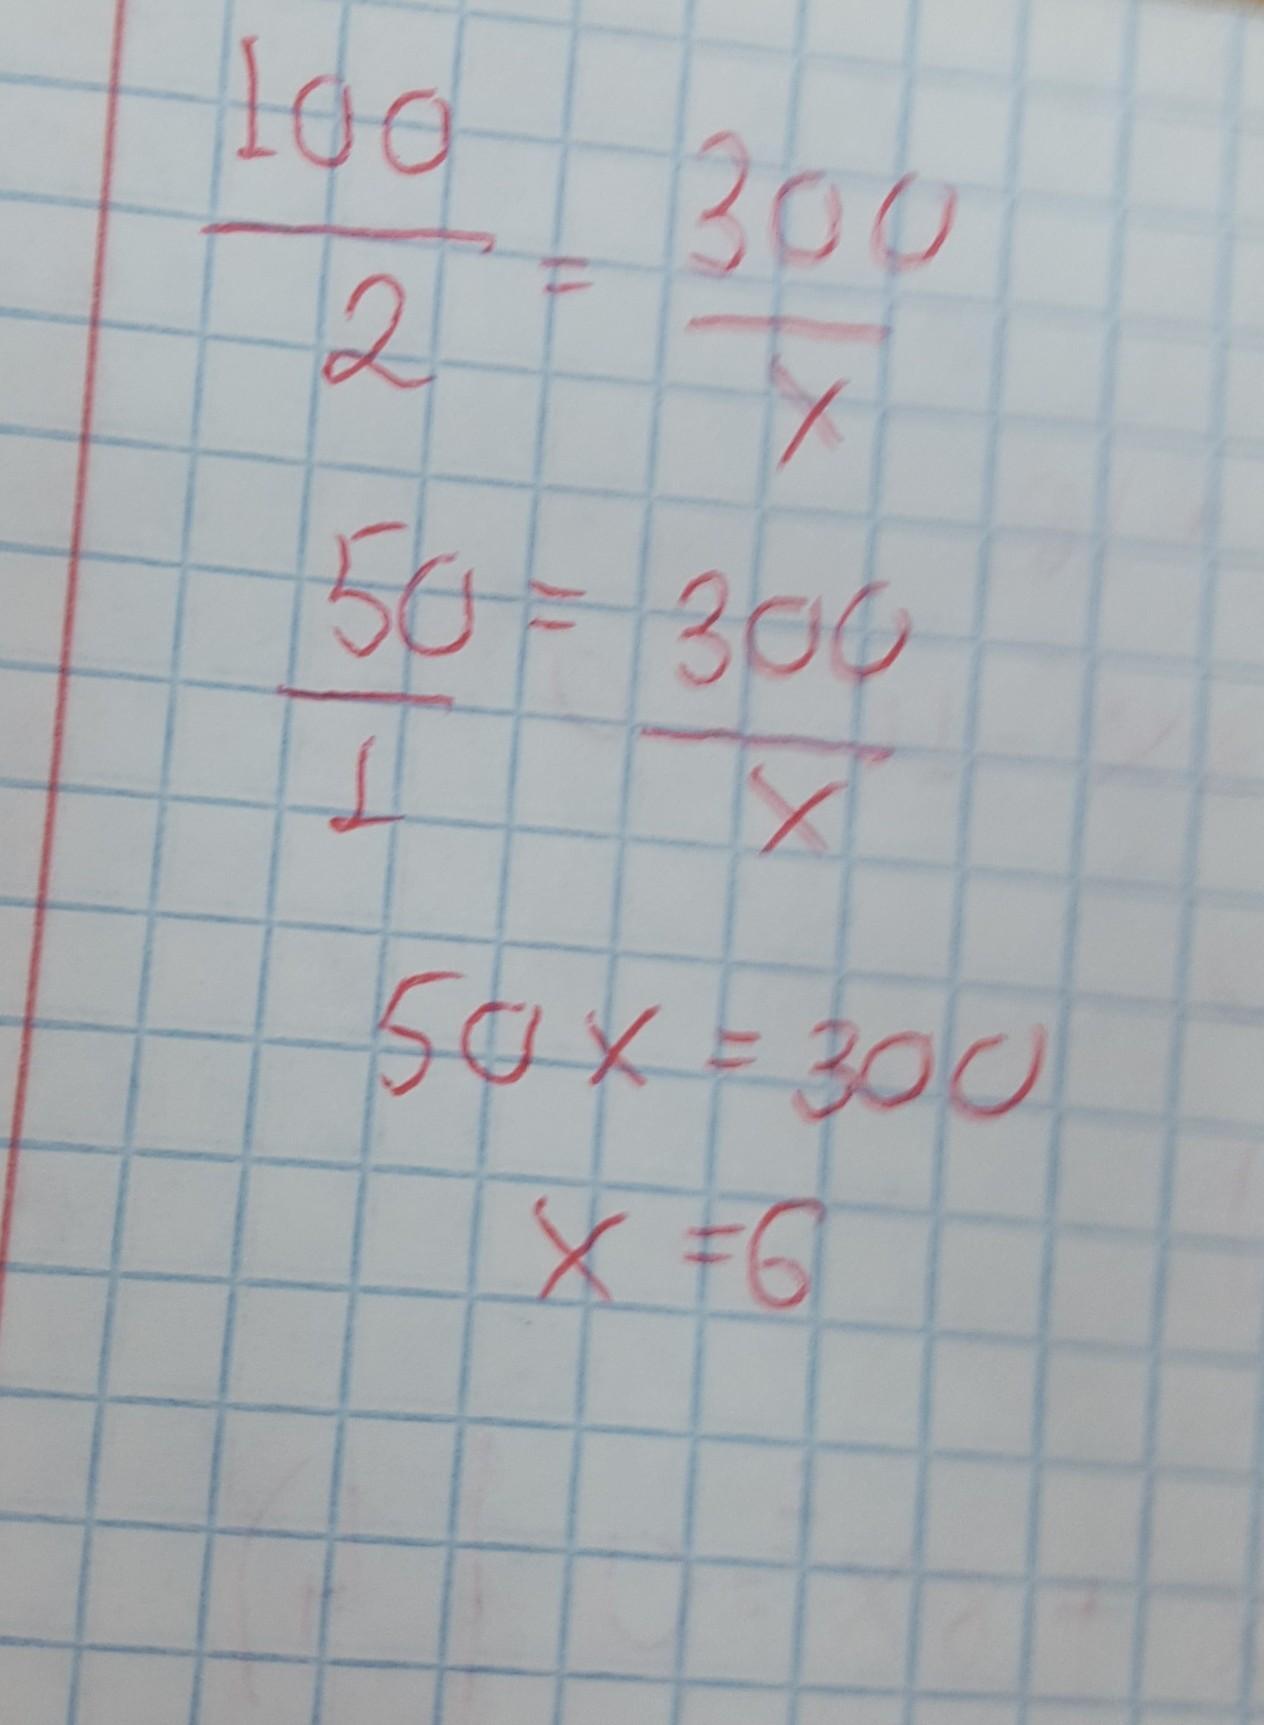 100/2 = 300/x
50/1 = 300/x
50x = 300
x = 6